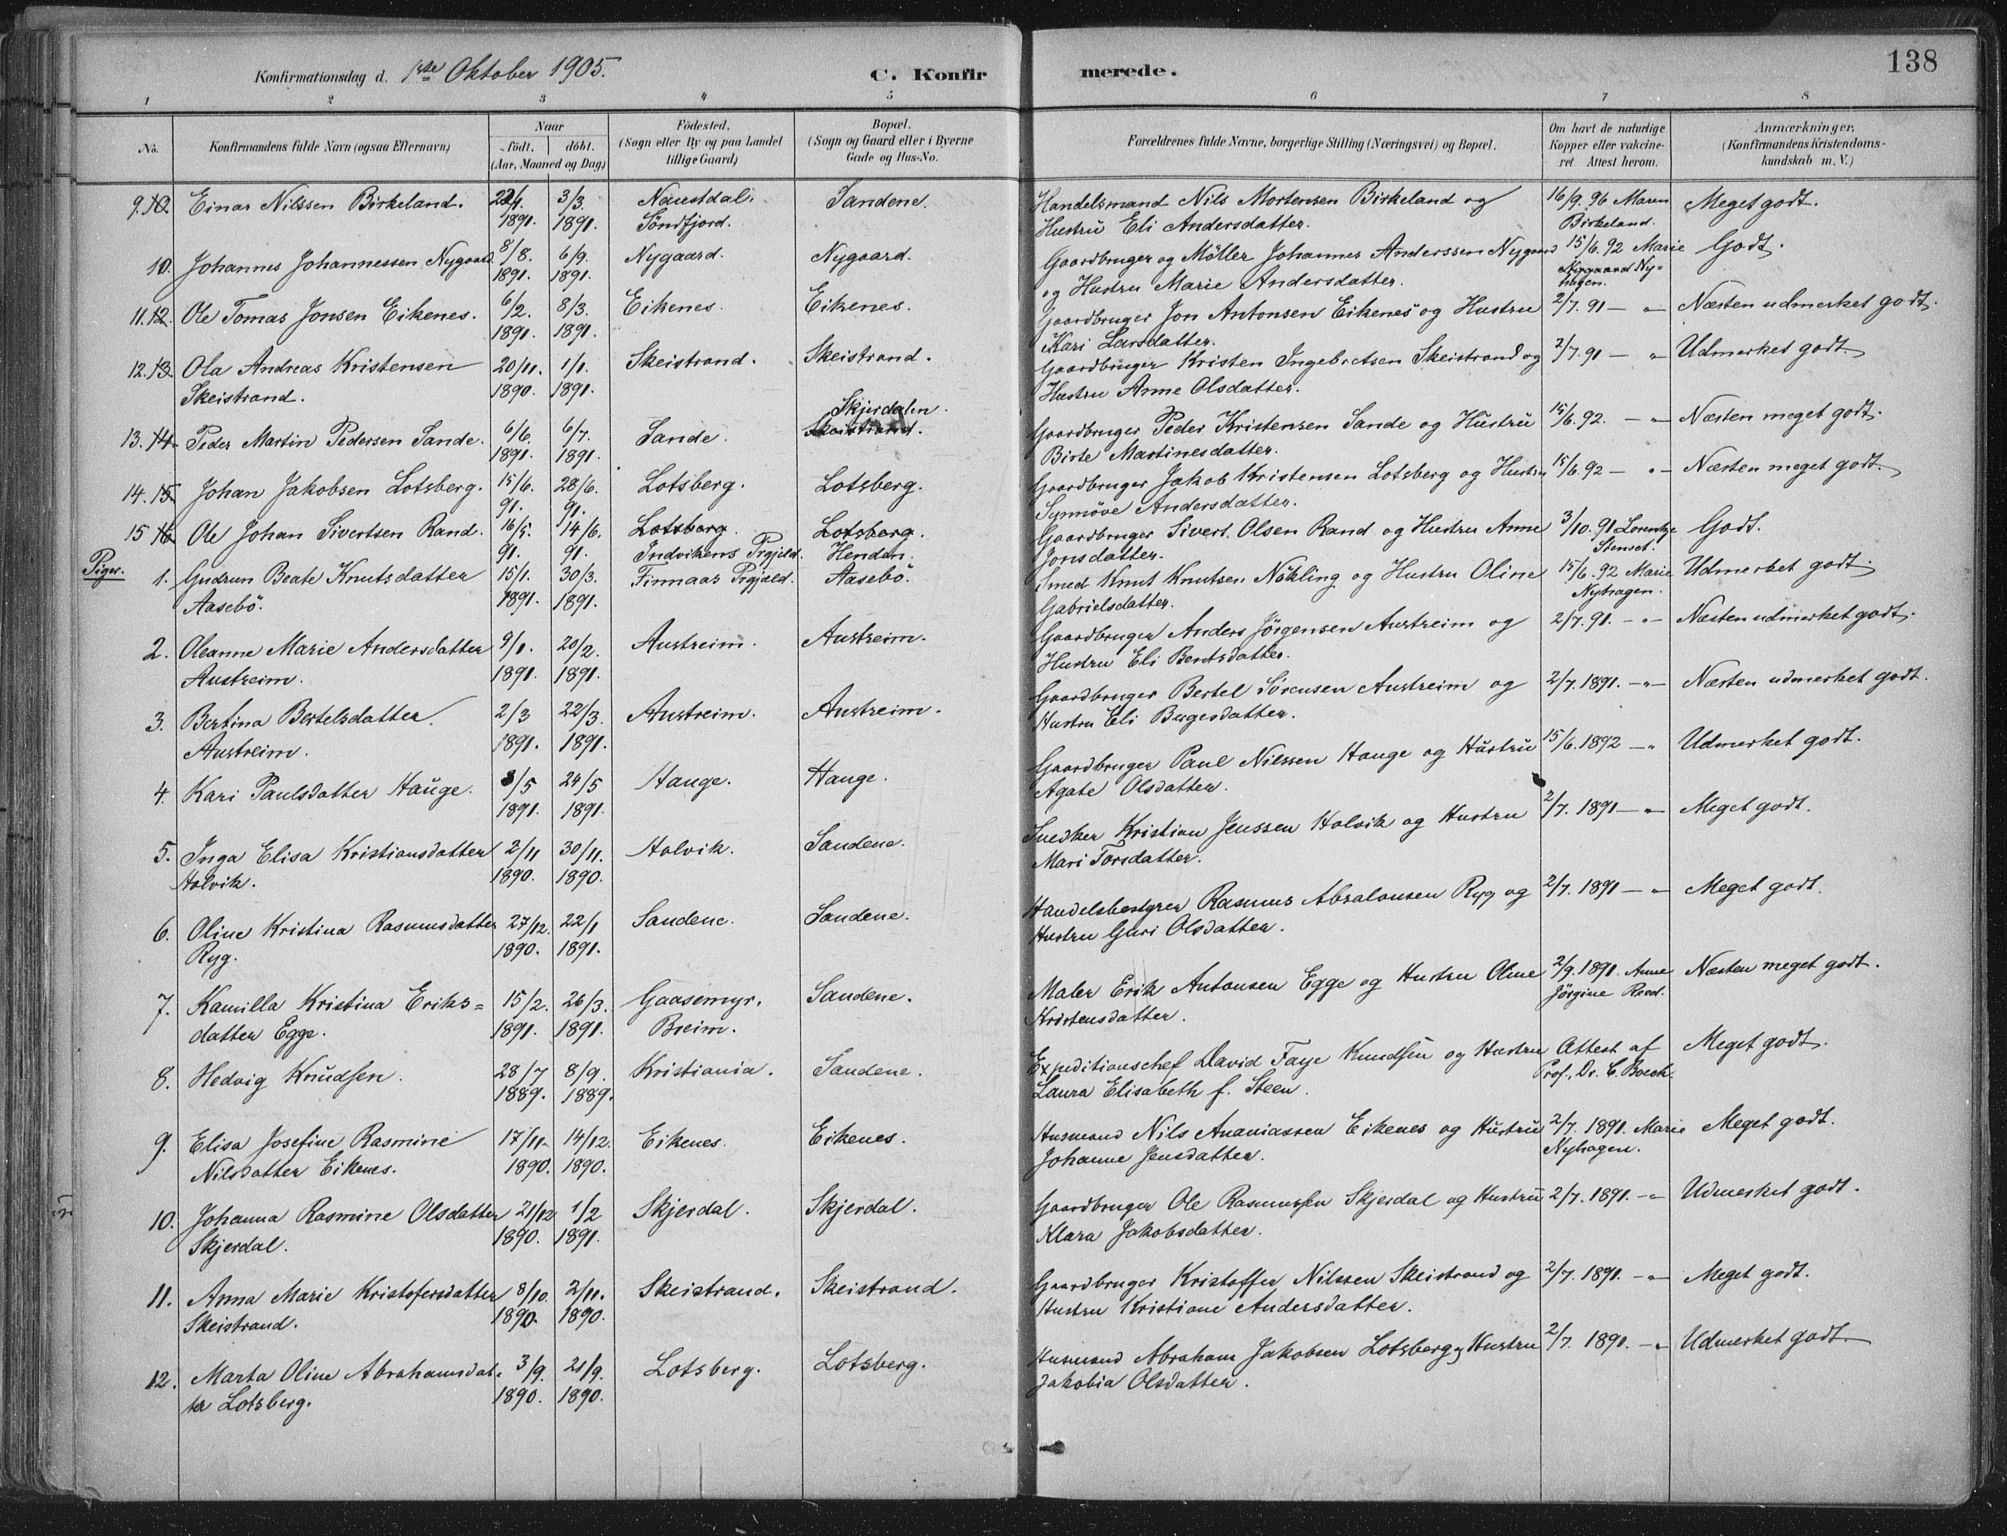 Konfirmationsdag d. 1ste Oktober 1905.
C. Konfirmerede.
138
1 2 3 4 5 6 7 8
No.
Konfirmandens fulde Navn (ogsaa Efternavn)
Naar
födt. döbt.
(Aar, Maaned og Dag)
Födested.
(Sogn eller By og paa Landet
tillige Gaard)
Bopæl.
(Sogn og Gaard eller i Byerne
Gade og Hus-No.
Forældrenes fulde Navne, borgerlige Stilling (Næringsvei) og Bopæl.
Om havt de naturlige
Kopper eller vakcine-
ret. Attest herom.
Anmærkninger.
(Konfirmandens Kristendoms-
kundskab m. V.)
9. 10. Einar Nilssen Birkeland. 3/3. Naustdal. Sandene. Handelsmand Nils Mortensen Birkeland og 16/9. 96 Maren Meget godt.
1891. 1891. Söndfjord. Hustru Eli Andersdatter. Birkeland.
10. Johannes Johannessen Nygaard. 8/8. 6/9. Nygaard. Nygaard. Gaardbruger og Möller Johannes Anderssen Nygaard 15/6. 92 Marie Godt.
1891. 1891. og Hustru Marie Andersdatter. Nygaard Ny-
hagen.
11. 12. Ole Tomas Jonsen Eikenes. 6/2. 8/3. Eikenes. Eikenes. Gaardbruger Jon Antonsen Eikenes og Hustru 2/7. 91 — " Næsten udmerket godt.
1891. 1891. Kari Larsdatter.
12. 13. Ola Andreas Kristensen 20/11. 1/1. Skeistrand. Skeistrand. Gaardbruger Kristen Ingebretsen Skeistrand og 2/7. 91 — " Udmerket godt.
Skeistrand. 1890. 1891. Hustru Anne Olsdatter.
Skjerdalen.
13. 14. Peder Martin Pedersen Sande. 6/6. 6/7. Sande. Skeistrand. Gaardbruger Peder Kristensen Sande og Hustru 15/6. 92. — " Næsten meget godt.
1891. 1891. Birte Martinesdatter.
14. 15. Johan Jakobsen Lotsberg. 15/6. 28/6. Lotsberg. Lotsberg. Gaardbruger Jakob Kristensen Lotsberg og Hustru 15/6. 92 — " — Næsten meget godt.
91. 91. Synnöve Andersdatter.
15 16. Ole Johan Sivertsen Rand. 16/5. 14/6. Lotsberg. Lotsberg. Gaardbruger Sivert Olsen Rand og Hustru Anne 3/10. 91 Lorentze Godt.
91. 91. Indvikens Prgjeld. Henden. Jonsdatter. Stenset.
Piger.
1. Gudrun Beate Knutsdatter 15/1. 30/3. Finnaas Prgjæld. Aasebö. Smed Knut Knutsen Nökling og Hustru Oline 15/6. 92 Marie Udmerket godt.
Aasebö. 1891. 1891. Gabrielsdatter. Nyhagen.
2. Oleanne Marie Andersdatter 9/1. 20/2. Austreim. Austreim. Gaardbruger Anders Jörgensen Austreim og 2/7. 91. — " — Næsten udmerket godt.
Austreim. 1891. 1891. Hustru Eli Bentsdatter.
3. Bertina Bertelsdatter. 2/3 22/3. Austreim. Austreim. Gaardbruger Bertel Sörensen Austreim og 2/7. 1891. — " — Næsten udmerket godt.
Austreim. 1891. 1891. Hustru Eli Børgesdatter.
4. Kari Paulsdatter Hauge. 3/5 24/5 Hauge. Hauge. Gaardbruger Paul Nilssen Hauge og Hustru 15/6. 1892 — " Udmerket godt.
1891. 1891. Agate Olsdatter.
5. Inga Elisa Kristiansdatter 2/11 30/11. Holvik. Sandene. Snedker Kristian Jenssen Holvik og Hustru 2/7. 1891 — " Meget godt.
Holvik. 1890. 1890. Mari Torsdatter.
6. Oline Kristina Rasmusdatter 27/12. 22/1 Sandene. Sandene. Handelsbestyrer Rasmus Absalonsen Ryg og 2/7. 1891 — " Meget godt.
Ryg. 1890. 1891. Hustru Guri Olsdatter.
7. Kamilla Kristina Eriks= 15/2. 26/3. Gaasemyr. Sandene. Maler Erik Antonsen Egge og Hustru Oline 2/9. 1891. Anne Næsten meget godt.
datter Egge. 1891. 1891. Breim. Kristensdatter. Jörgine Reed.
8. Hedvig Knudsen. 28/7 8/9. Kristiania. Sandene. Expeditionschef David Faye Knudsen og Hustru Attest af Meget godt.
1889. 1889. Laura Elisabeth f. Steen. Prof. Dr. C. Boeck.
9. Elisa Josefine Rasmine 17/11. 14/12. Eikenes. Eikenes. Husmand Nils Ananiassen Eikenes og Hustru 2/7. 1891. Marie Meget godt.
Nilsdatter Eikenes. 1890. 1890. Johanne Jensdatter. Nyhagen.
10. Johanna Rasmine Olsdatter 21/12 1/2 Skjerdal. Skjerdal. Gaardbruger Ole Rasmussen Skjerdal og Hustru 2/7. 1891. — " Udmerket godt.
Skjerdal. 1890. 1891. Klara Jakobsdatter.
11. Anna Marie Kristofersdatter 8/10. 2/11. Skeistrand. Skeistrand. Gaardbruger Kristoffer Nilssen Skeistrand og 2/7. 1891. — " Meget godt.
Skeistrand. 1890. 1890. Hustru Kristiane Andersdatter.
12. Marta Oline Abrahamsdat- 3/9. 21/9. Lotsberg. Lotsberg. Husmand Abraham Jakobsen Lotsberg og Hustru 2/7. 1891. — " Udmerket godt.
ter Lotsberg. 1890. 1890. Jakobia Olsdatter.